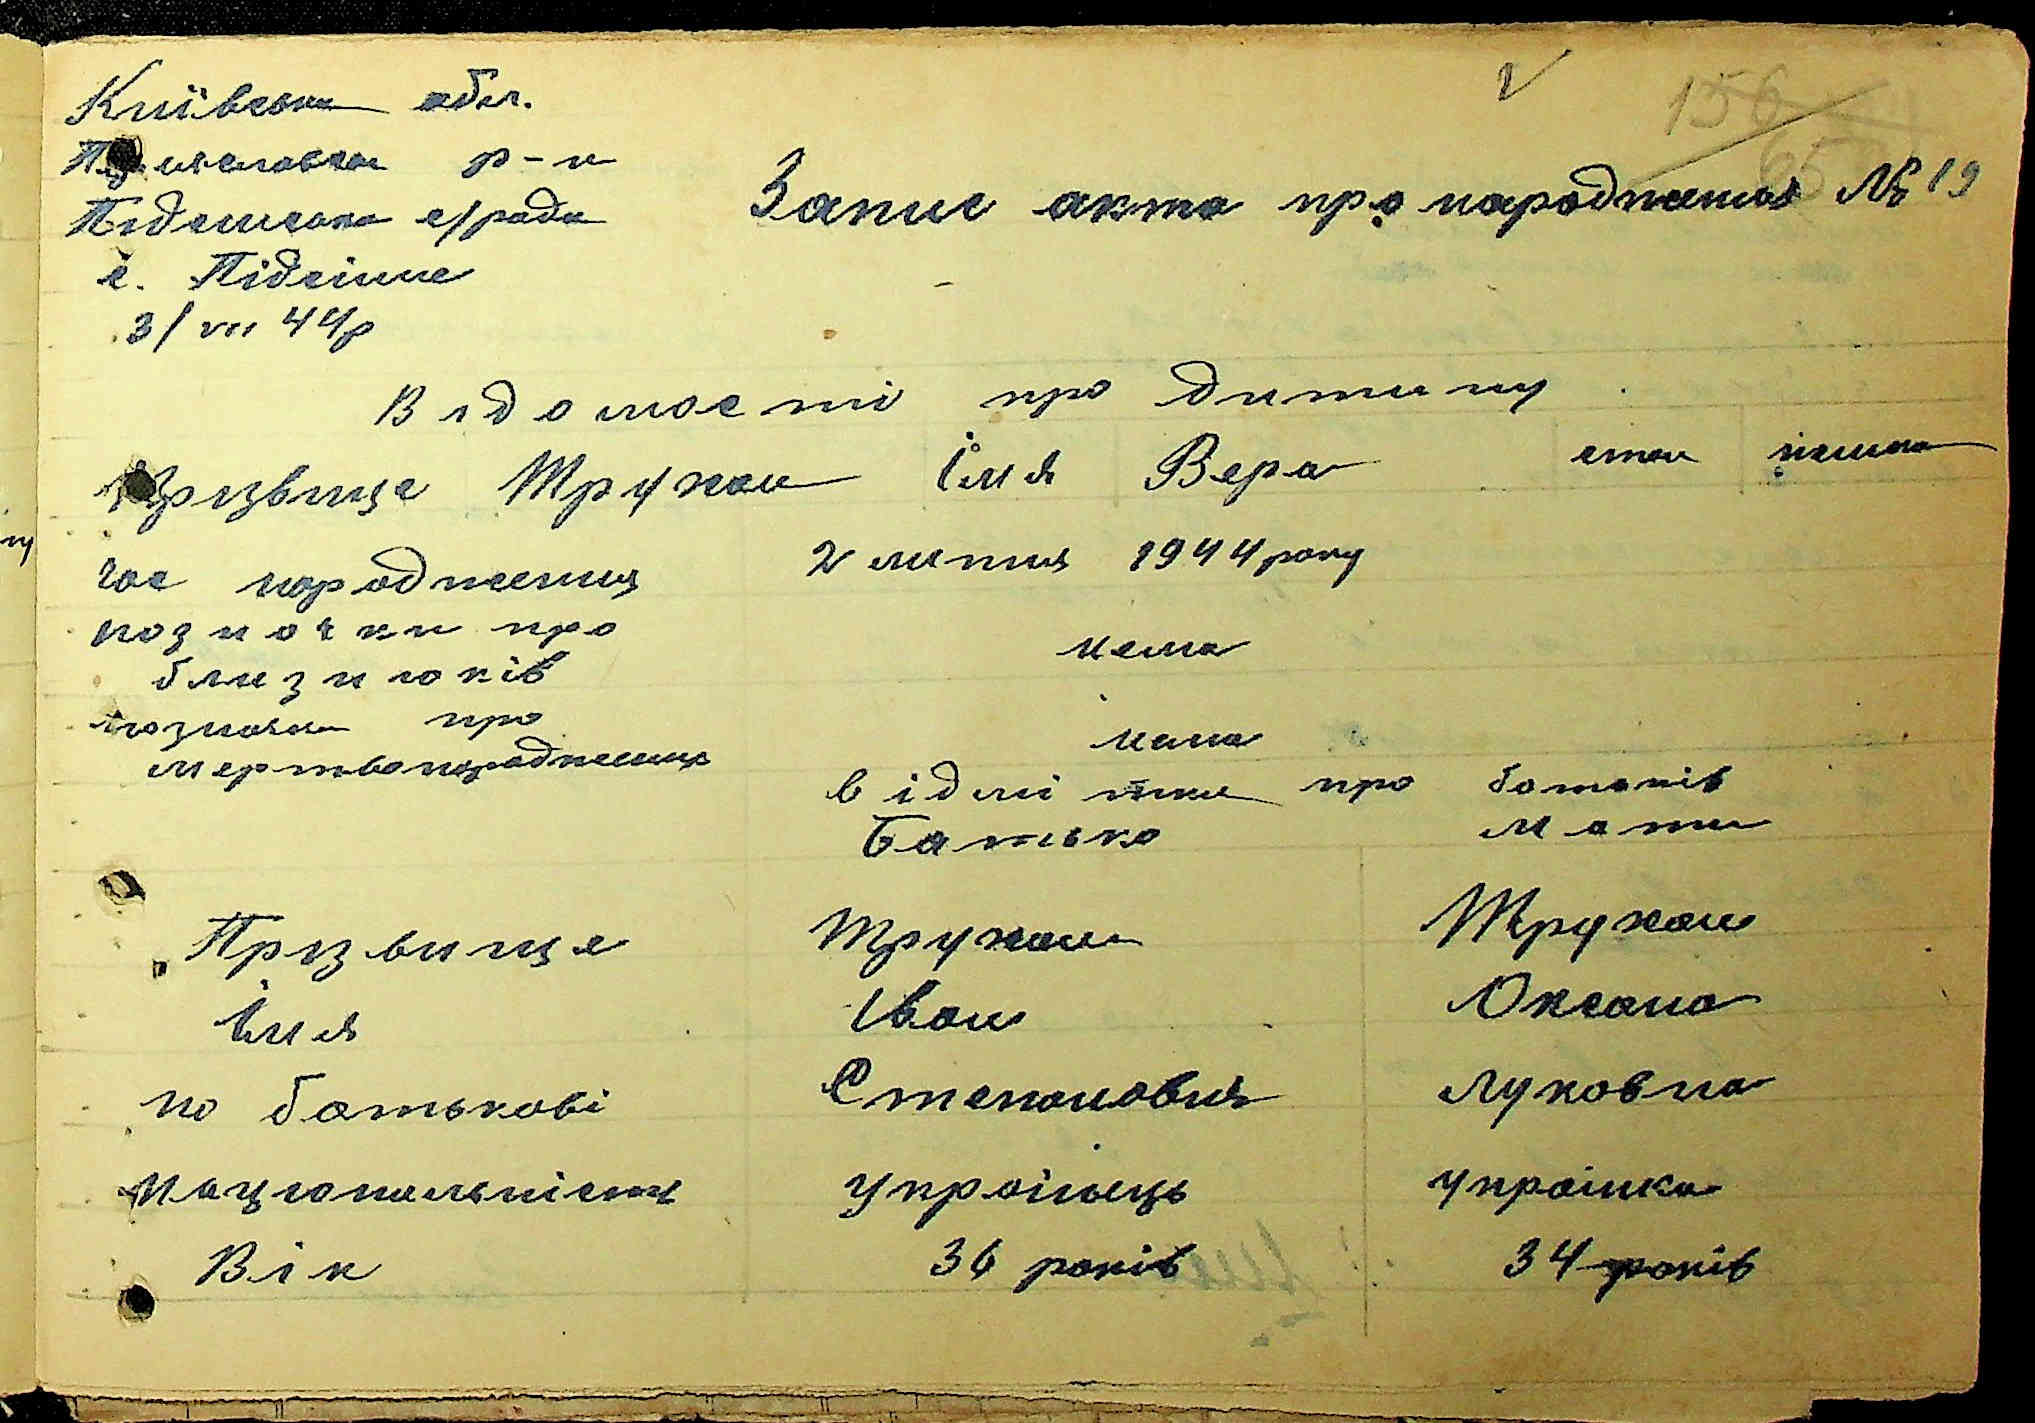 Київська обл.
Переяславськ р-н
Підсінська с/рада
с. Підсінне
3/VII 44р
Запис акта про народження № 19
156
65
Відомості про дитину
Прізвище Трухан Імя Вера стан жіноча
час народження 2 липня 1944 року
позначки про
близнюків нема
позначки про
мертвонароджених нема
відмітки про батьків
Батько Мати
Прізвище Трухан Трухан
Імя Іван Оксана
по батькові Степанович Луковна
національність українець українка
Вік 36 років 34 років